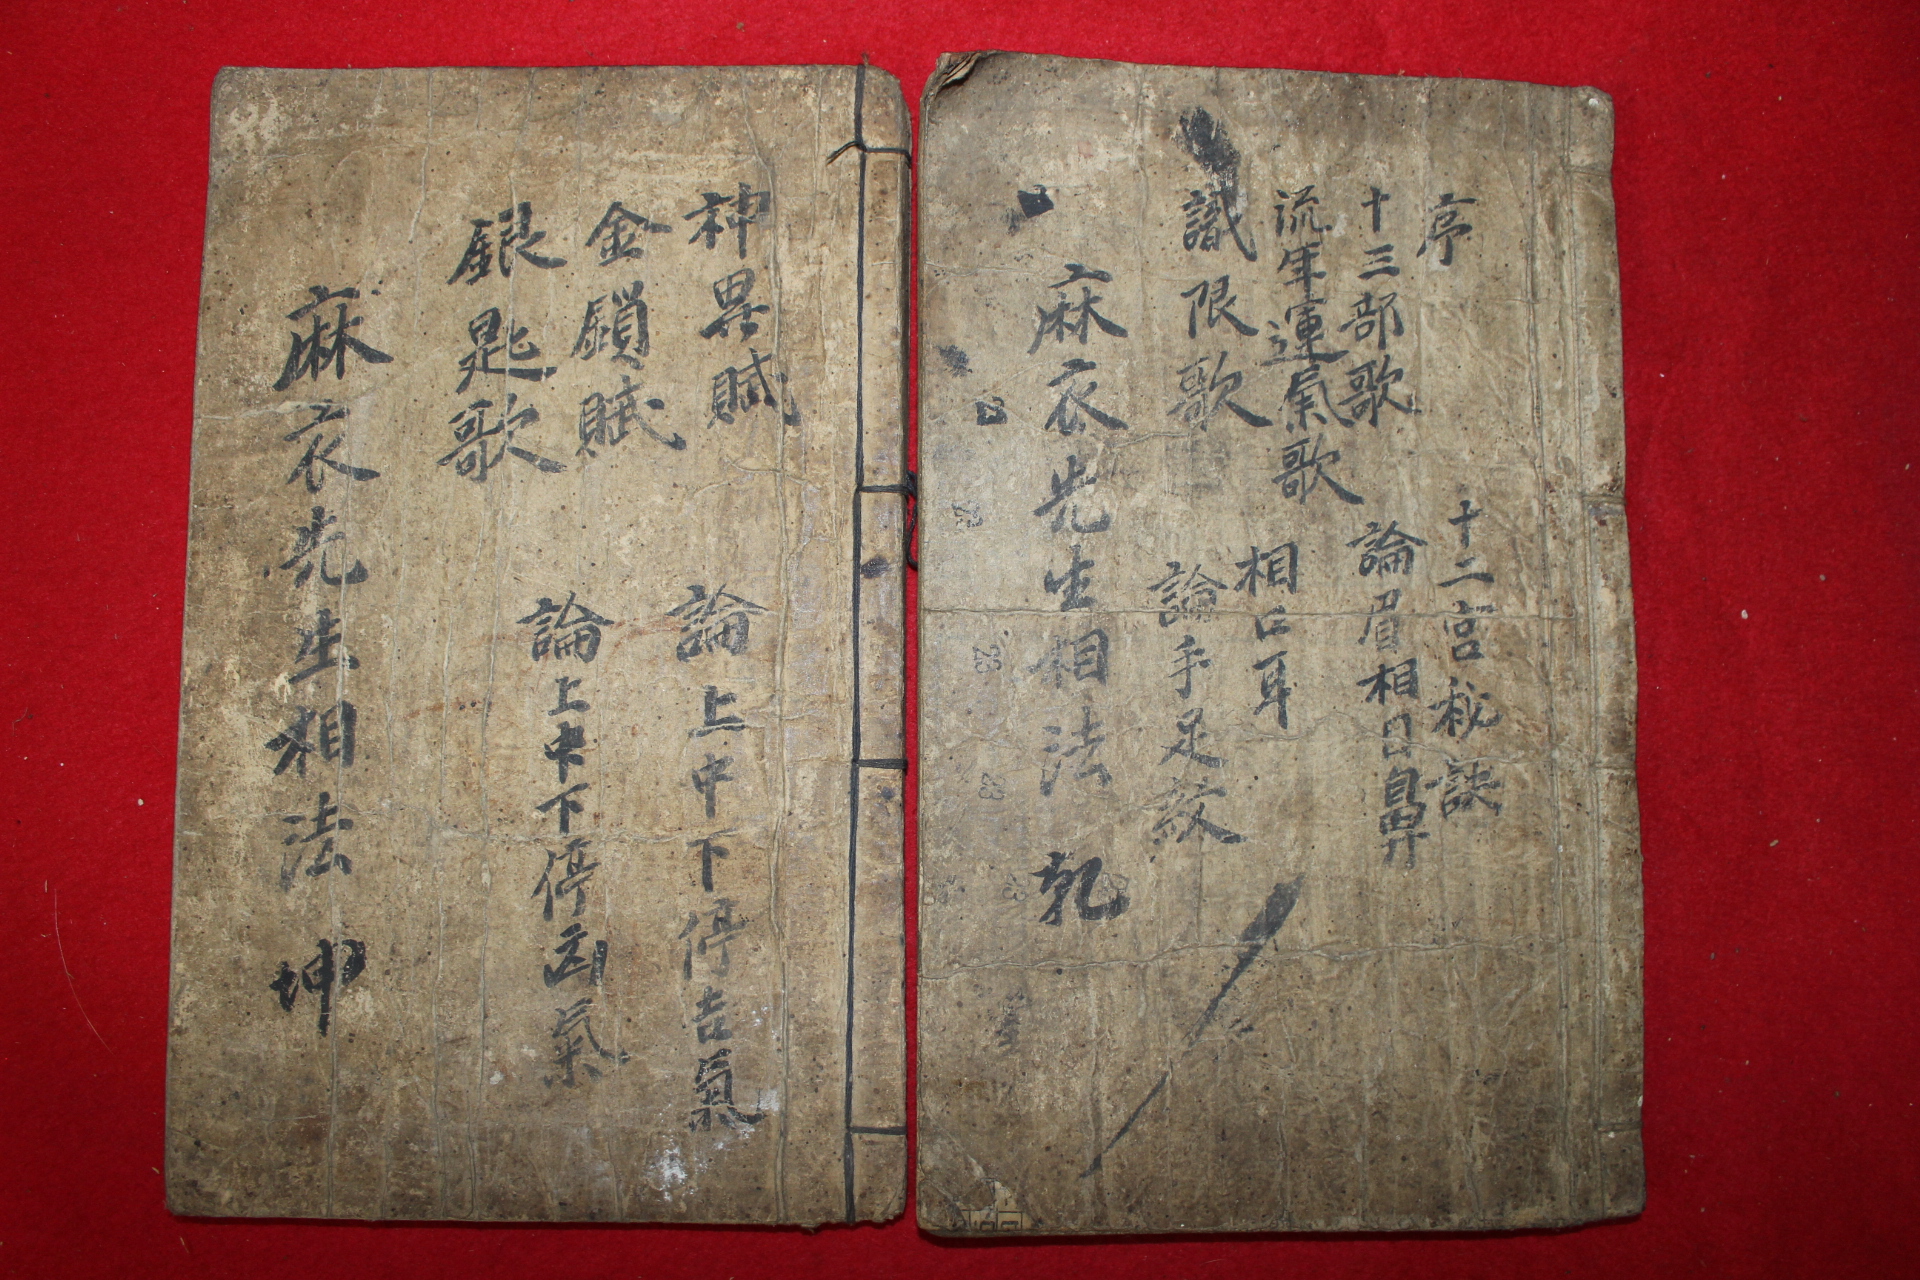 序
十二宮秘訣
十三部歌
論眉相目鼻
流年運氣歌
相口耳
識限歌
論手足紋
麻衣先生相法 乾
神異賦
論上中下停吉氣
金鎖賦
論上中下停凶氣
銀匙歌
麻衣先生相法 坤